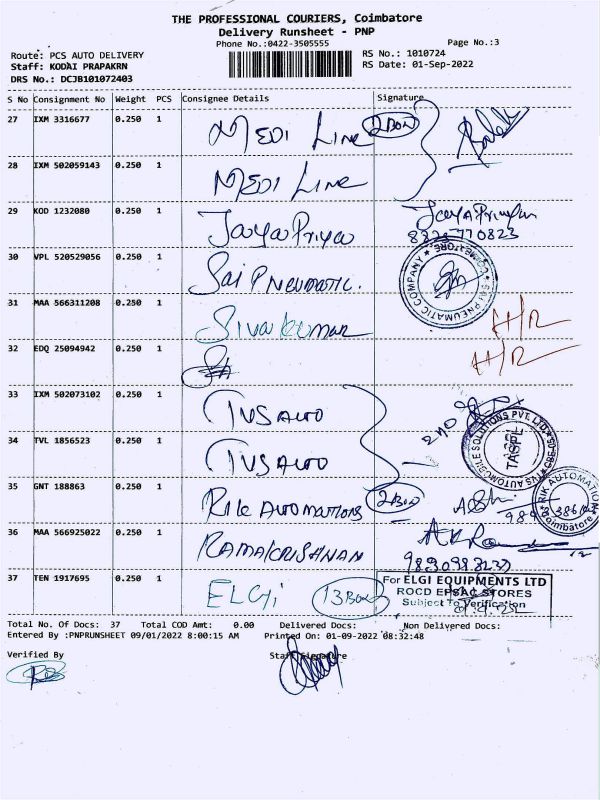 THE PROFESSIONAL COURIERS, Coimbatore
Delivery Runsheet - PNP
Phone No.:0422-3505555
Page No.:3
Route: PCS AUTO DELIVERY
RS No.: 1010724
Staff: KODAI PRAPAKRN
RS Date: 01-Sep-2022
DRS No.: DCJB101072403
S No Consignment No Weight PCS Consignee Details Signature
27 IXM 3316677 0.250 1 MEDI LINE 2 BOX
28 IXM 502059143 0.250 1 MEDI LINE
29 KOD 1232080 0.250 1 Jaya Priya
30 VPL 520529056 0.250 1 Sai PNEUMATIC.
SAI PNEUMATIC COMPANY * COIMBATORE
31 MAA 566311208 0.250 1 Sivakumar H/R
32 EDQ 25094942 0.250 1 H/R
33 IXM 502073102 0.250 1 TVS AUTO
34 TVL 1856523 0.250 1 TVS AUTO
TVS AUTOMOBILE SOLUTIONS PVT. LTD.
TASPL
35 GNT 188863 0.250 1 RIK AUTOMATIONS
RIK AUTOMATION
Coimbatore
36 MAA 566925022 0.250 1 RAMAKRISHNAN
37 TEN 1917695 0.250 1 ELGi 13 BOX
For ELGI EQUIPMENTS LTD
ROCD EPSAC STORES
Subject To Verification
Total No. Of Docs: 37 Total COD Amt: 0.00 Delivered Docs: Non Delivered Docs:
Entered By :PNPRUNSHEET 09/01/2022 8:00:15 AM Printed On: 01-09-2022 08:32:48
Verified By Staff Signature